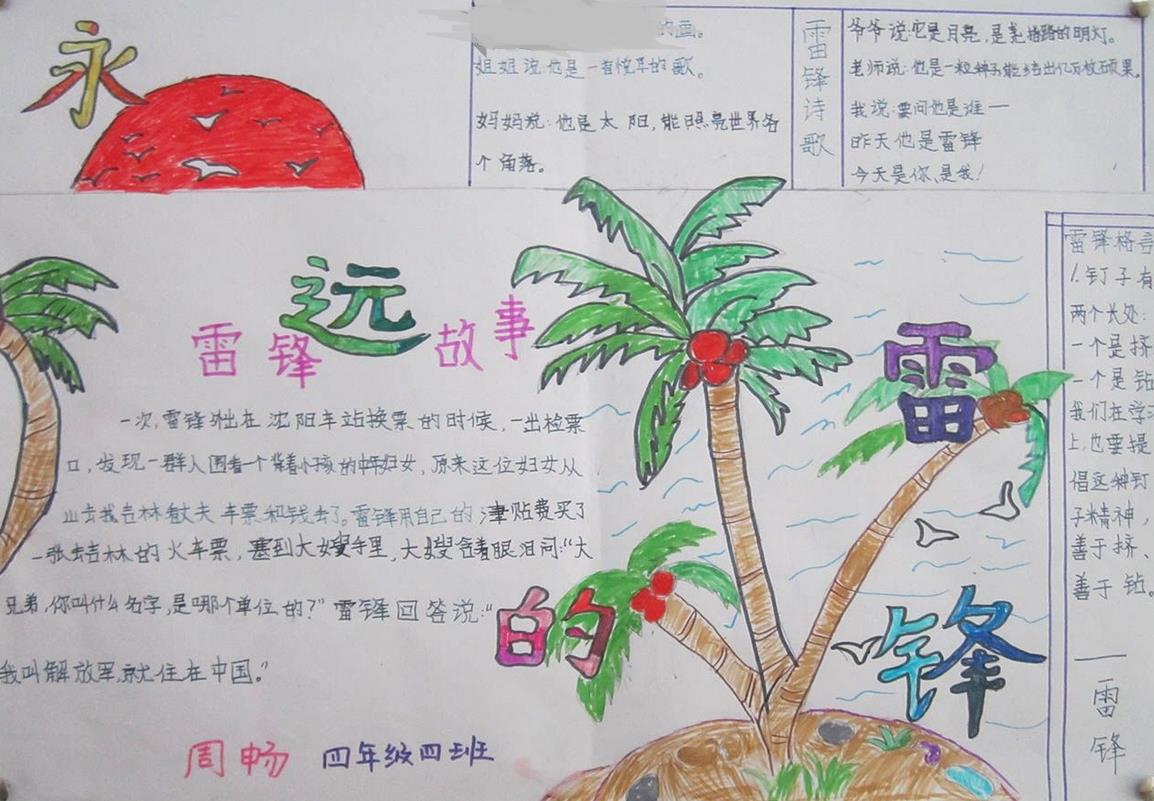 永
的画。
姐姐说:他是一首悦耳的歌。
妈妈说:他是太阳,能照亮世界各
个角落。
雷锋诗歌
爷爷说:它是月亮,是羊肠路的明灯。
老师说:他是一粒种子能结出亿万枚硕果。
我说:要问他是谁一
昨天他是雷锋
今天是你、是我!
远
雷锋故事
一次,雷锋外出在沈阳车站换票的时候,一出检票
口,发现一群人围着一个背着小孩的中年妇女,原来这位妇女从
山去找吉林丈夫车票和钱丢了。雷锋用自己的津贴费买了
一张去吉林的火车票,塞到大嫂手里,大嫂含着眼泪问:“大
兄弟,你叫什么名字,是哪个单位的?”雷锋回答说:“
我叫解放军,就住在中国。”
的
雷
锋
周畅 四年级四班
雷锋格言
1.钉子有
两个长处:
一个是挤
一个是钻
我们在学习
上,也要提
倡这种钉
子精神,
善于挤、
善于钻。
—雷锋